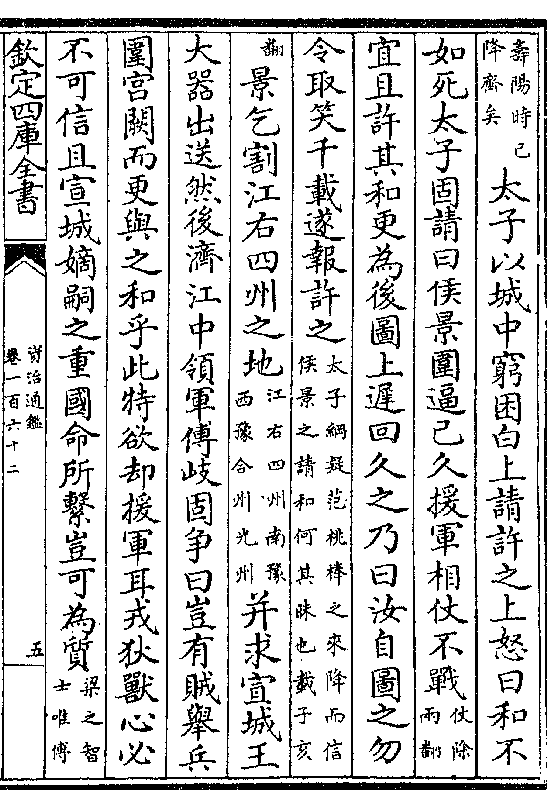 壽陽時已降齊矣太子以城中窮困白上請許之上怒曰和不
如死太子固請曰侯景圍逼已久援軍相仗不戰仗除兩翻
宜且許其和更為後圖上遲回久之乃曰汝自圖之勿
令取笑千載遂報許之太子綱疑范桃棒之來降而信侯景之請和何其昧也載子亥
翻景乞割江右四州之地江右四州南豫西豫合州光州并求宣城王
大器出送然後濟江中領軍傅岐固争曰豈有賊舉兵
圍宫闕而更與之和乎此特欲却援軍耳戎狄獸心必
不可信且宣城嫡嗣之重國命所繫豈可為質梁之智士唯傅
欽定四庫全書
資治通鑑
卷一百六十二
五